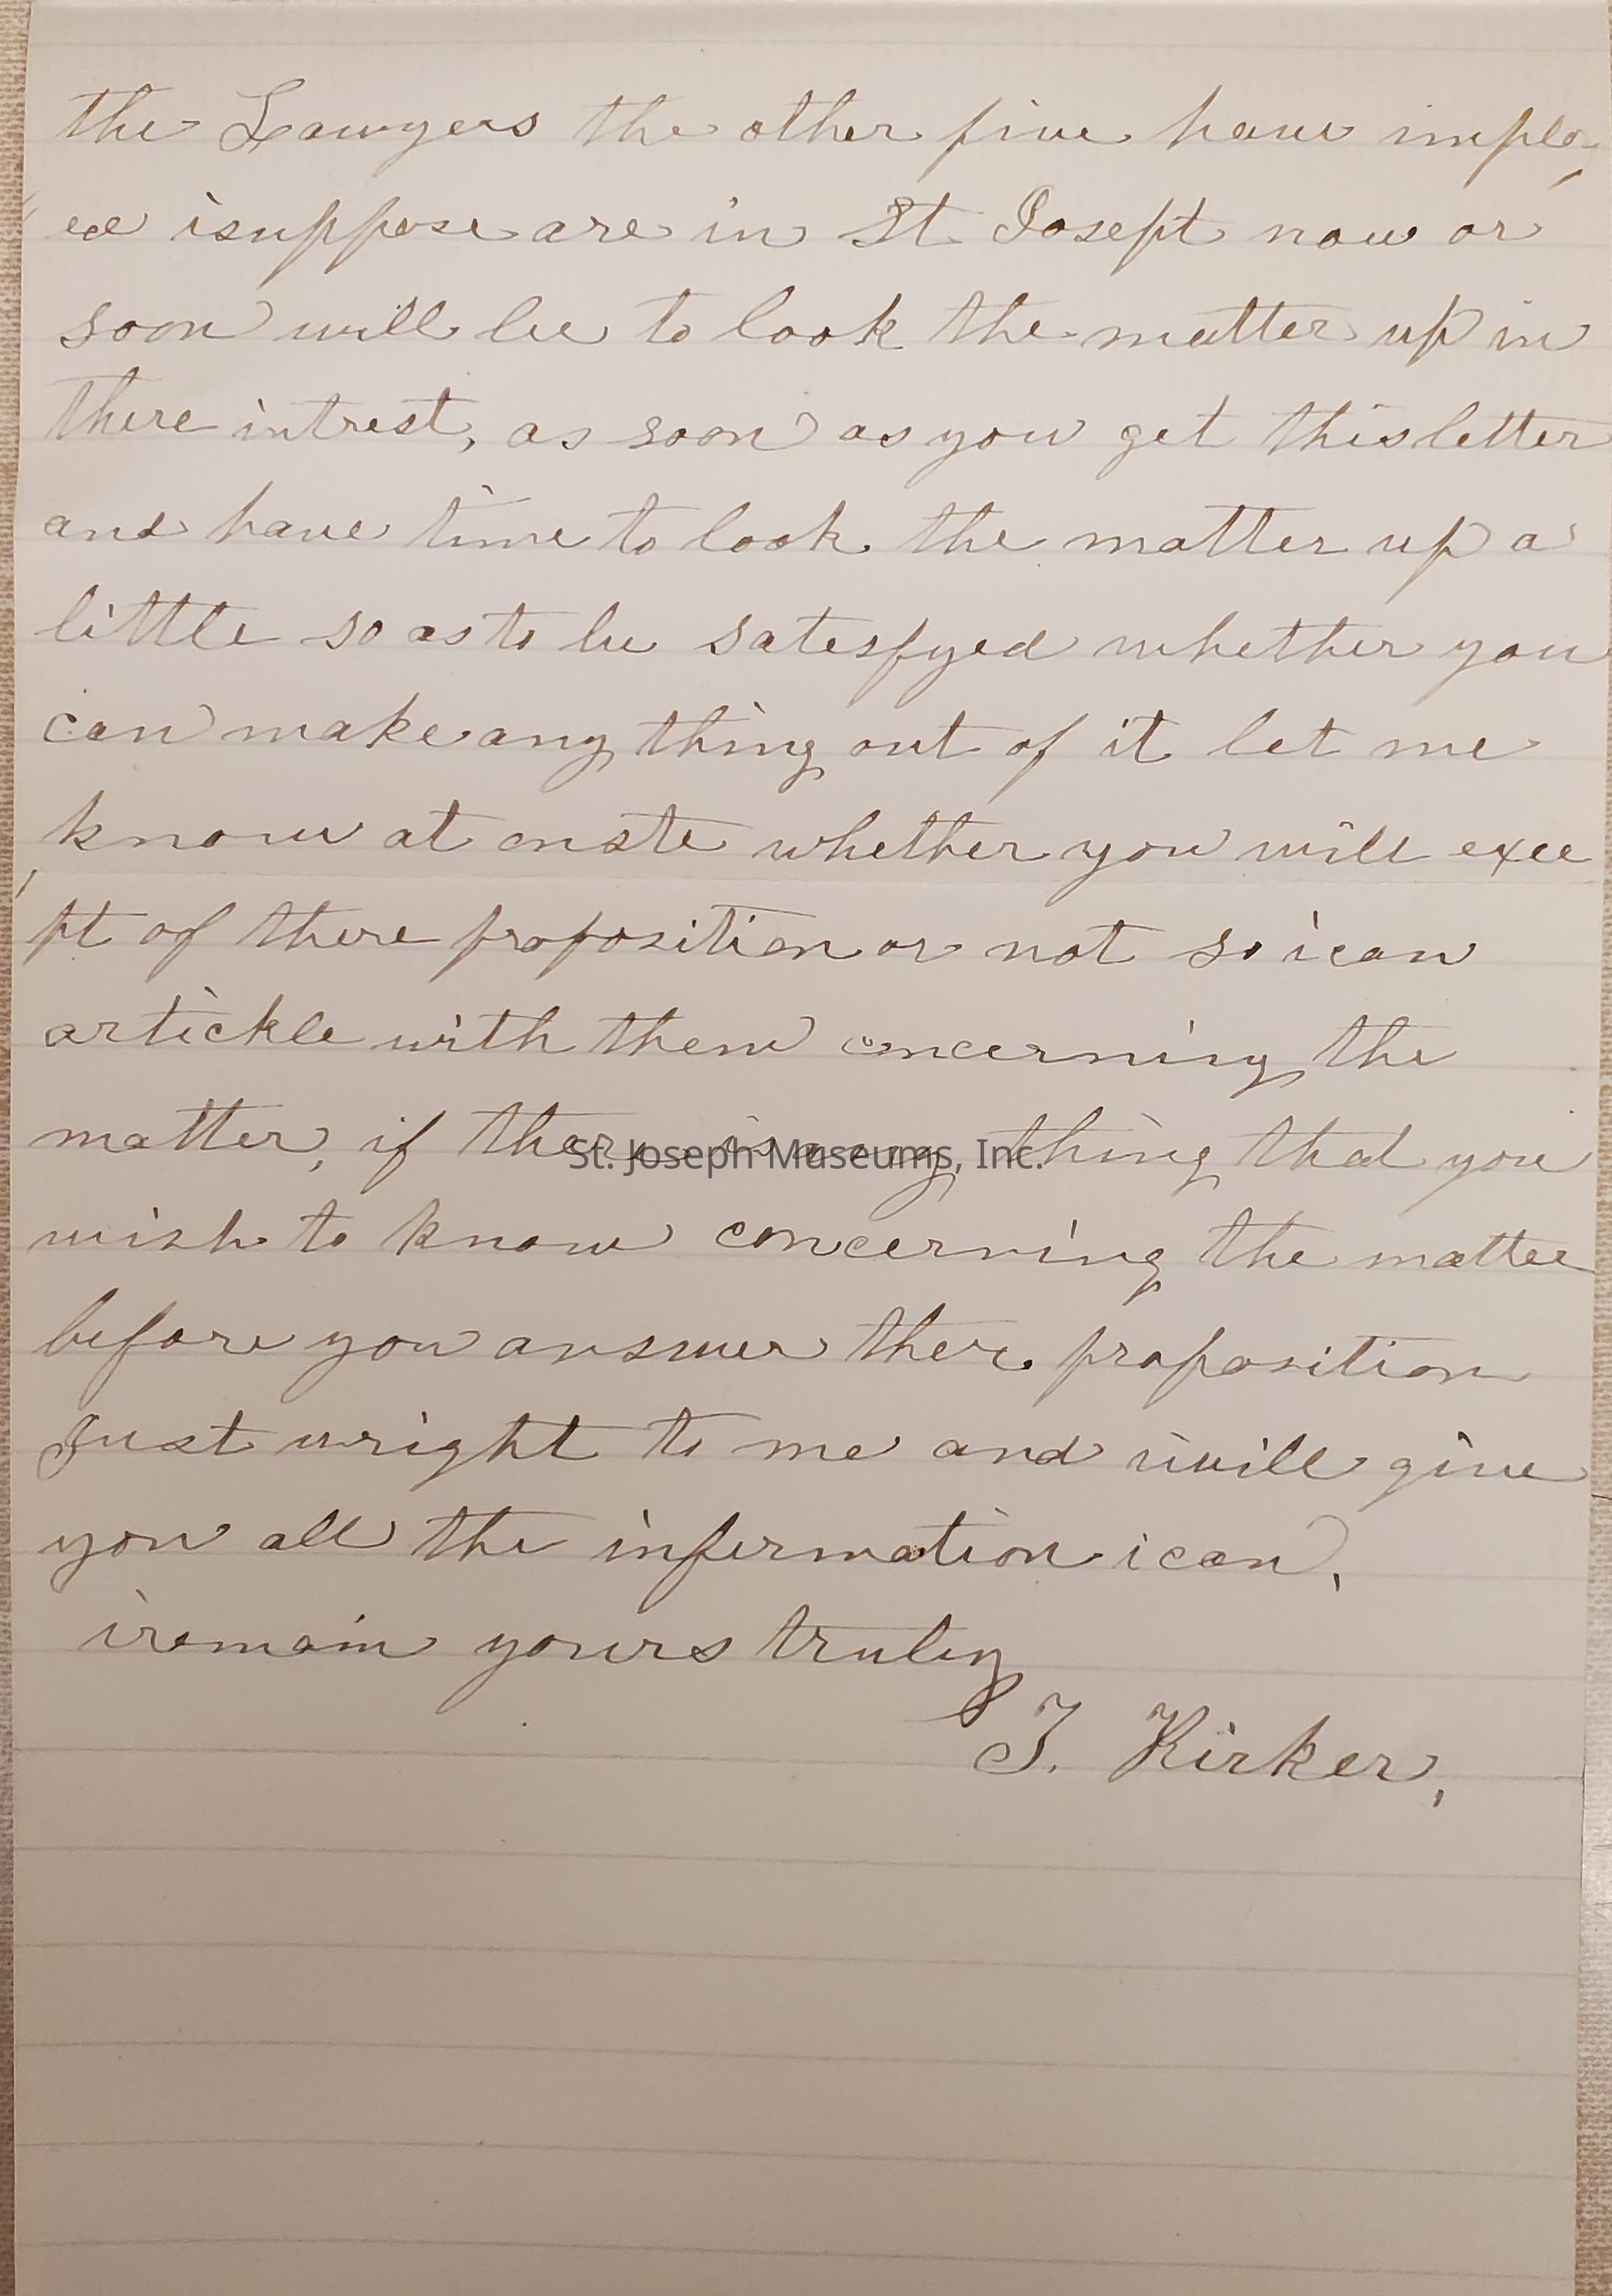 the Lawyers the other five have implo-
ed isuppose are in St Josept now or
soon will be to look the matter up in
there intrest, as soon as you get this letter
and have time to look the matter up a
little so as to be satesfyed whether you
can make any thing out of it let me
know at onste whether you will exce
pt of there proposition or not so i can
artickle with them concerning the
matter, if there is any thing that you
St. Joseph Museums, Inc.
wish to know concerning the matter
before you answer there proposition
Just wright to me and iwill give
you all the information i can,
iremain yours truley
T. Kirker,